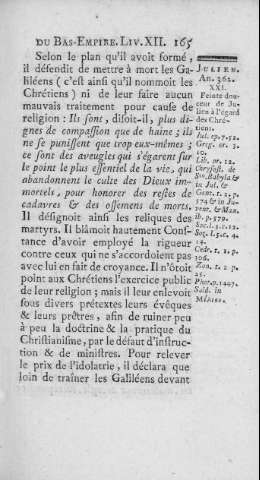 DU BAS-EMPIRE. LIV. XII. 165
Selon le plan qu'il avoit formé,
il défendit de mettre à mort les Ga-
liléens ( c'est ainsi qu'il nommoit les
Chrétiens ) ni de leur faire aucun
mauvais traitement pour cause de
religion : Ils sont, disoit-il, plus di-
gnes de compassion que de haine ; ils
ne se punissent que trop eux-mêmes ;
ce sont des aveugles qui s'égarent sur
le point le plus essentiel de la vie, qui
abandonnent le culte des Dieux im-
mortels, pour honorer des restes de
cadavres & des ossemens de morts.
Il désignoit ainsi les reliques des
martyrs. Il blâmoit hautement Cons-
tance d'avoir employé la rigueur
contre ceux qui ne s'accordoient pas
avec lui en fait de croyance. Il n'ôtoit
point aux Chrétiens l'exercice public
de leur religion ; mais il leur enlevoit
sous divers prétextes leurs évêques
& leurs prêtres, afin de ruiner peu
à peu la doctrine & la pratique du
Christianisme, par le défaut d'instruc-
tion & de ministres. Pour relever
le prix de l'idolatrie, il déclara que
loin de traîner les Galiléens devant
JULIEN.
An. 362.
XXI.
Feinte dou-
ceur de Ju-
lien à l'égard
des Chré-
tiens.
Jul. ep. 7. 52.
Greg. or. 3.
10.
Lib. or. 12.
Chrysost. de
Sto. Babyla &
in Jul. &
Gent. t. 2. p.
574 & in Ju-
vent. & Max.
ib. p. 579.
Soc. l. 3. c. 12.
Soz. l. 5. c. 4.
14.
Cedr. t. 1. p.
306.
Zon. t. 2. p.
25.
Phot. p. 1407.
Suid. in